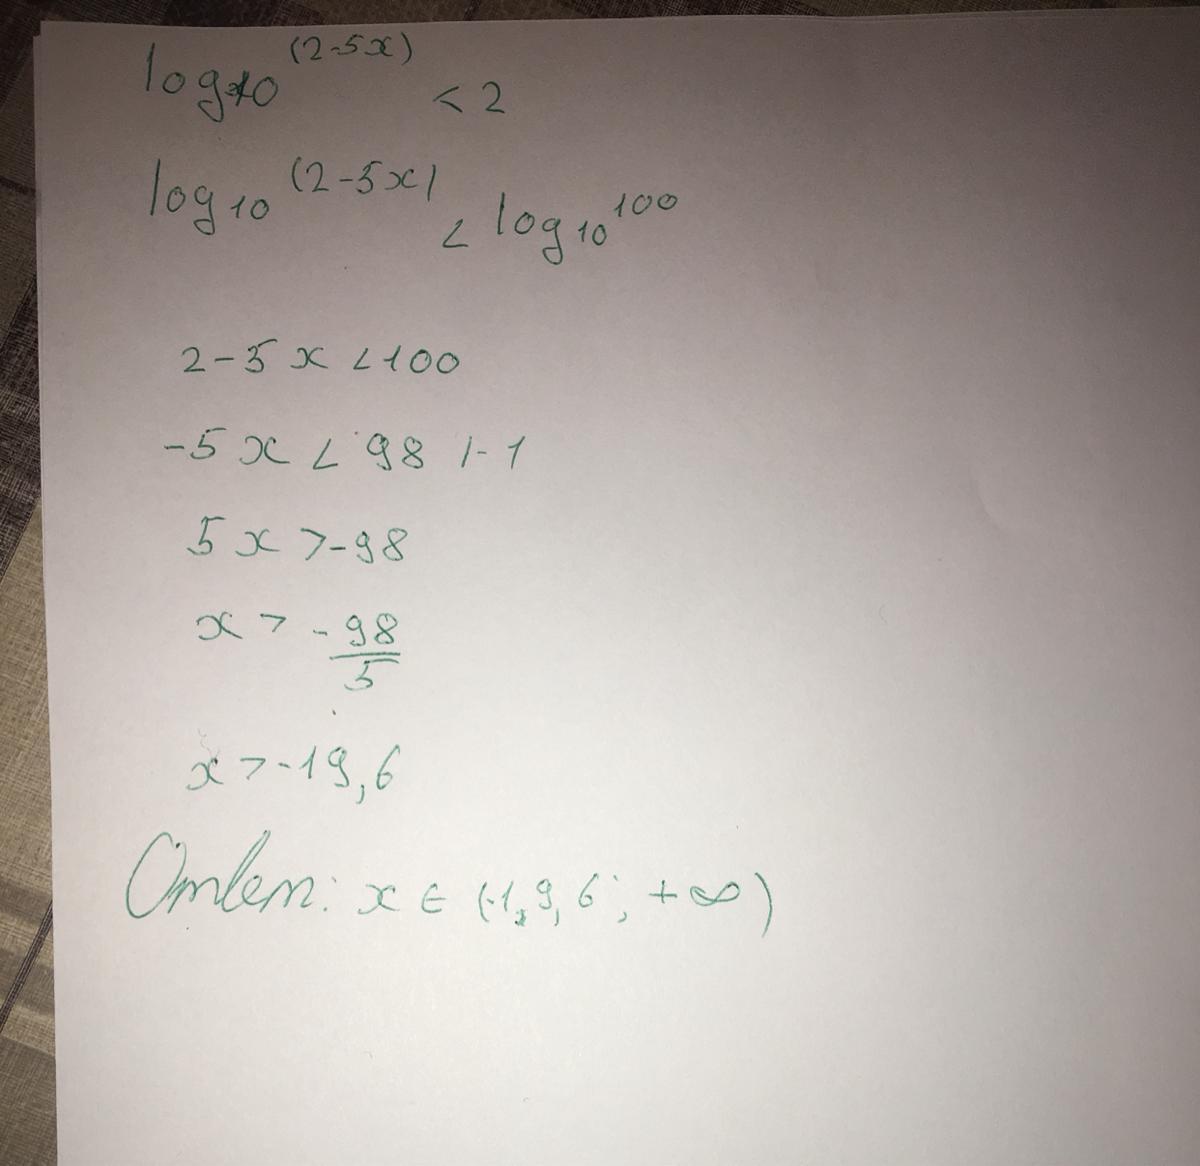 log10 (2-5x) < 2
log10 (2-5x) < log10 100
2-5x < 100
-5x < 98 |·-1
5x > -98
x > -98/5
x > -19,6
Ответ: x ∈ (-19,6; +∞)